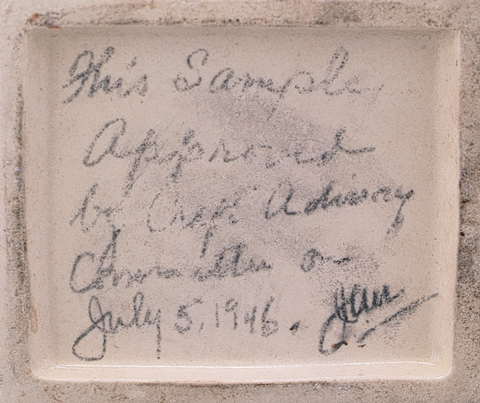 This Sample
Approved
by Craft Advisory
Committee on
July 5, 1946.